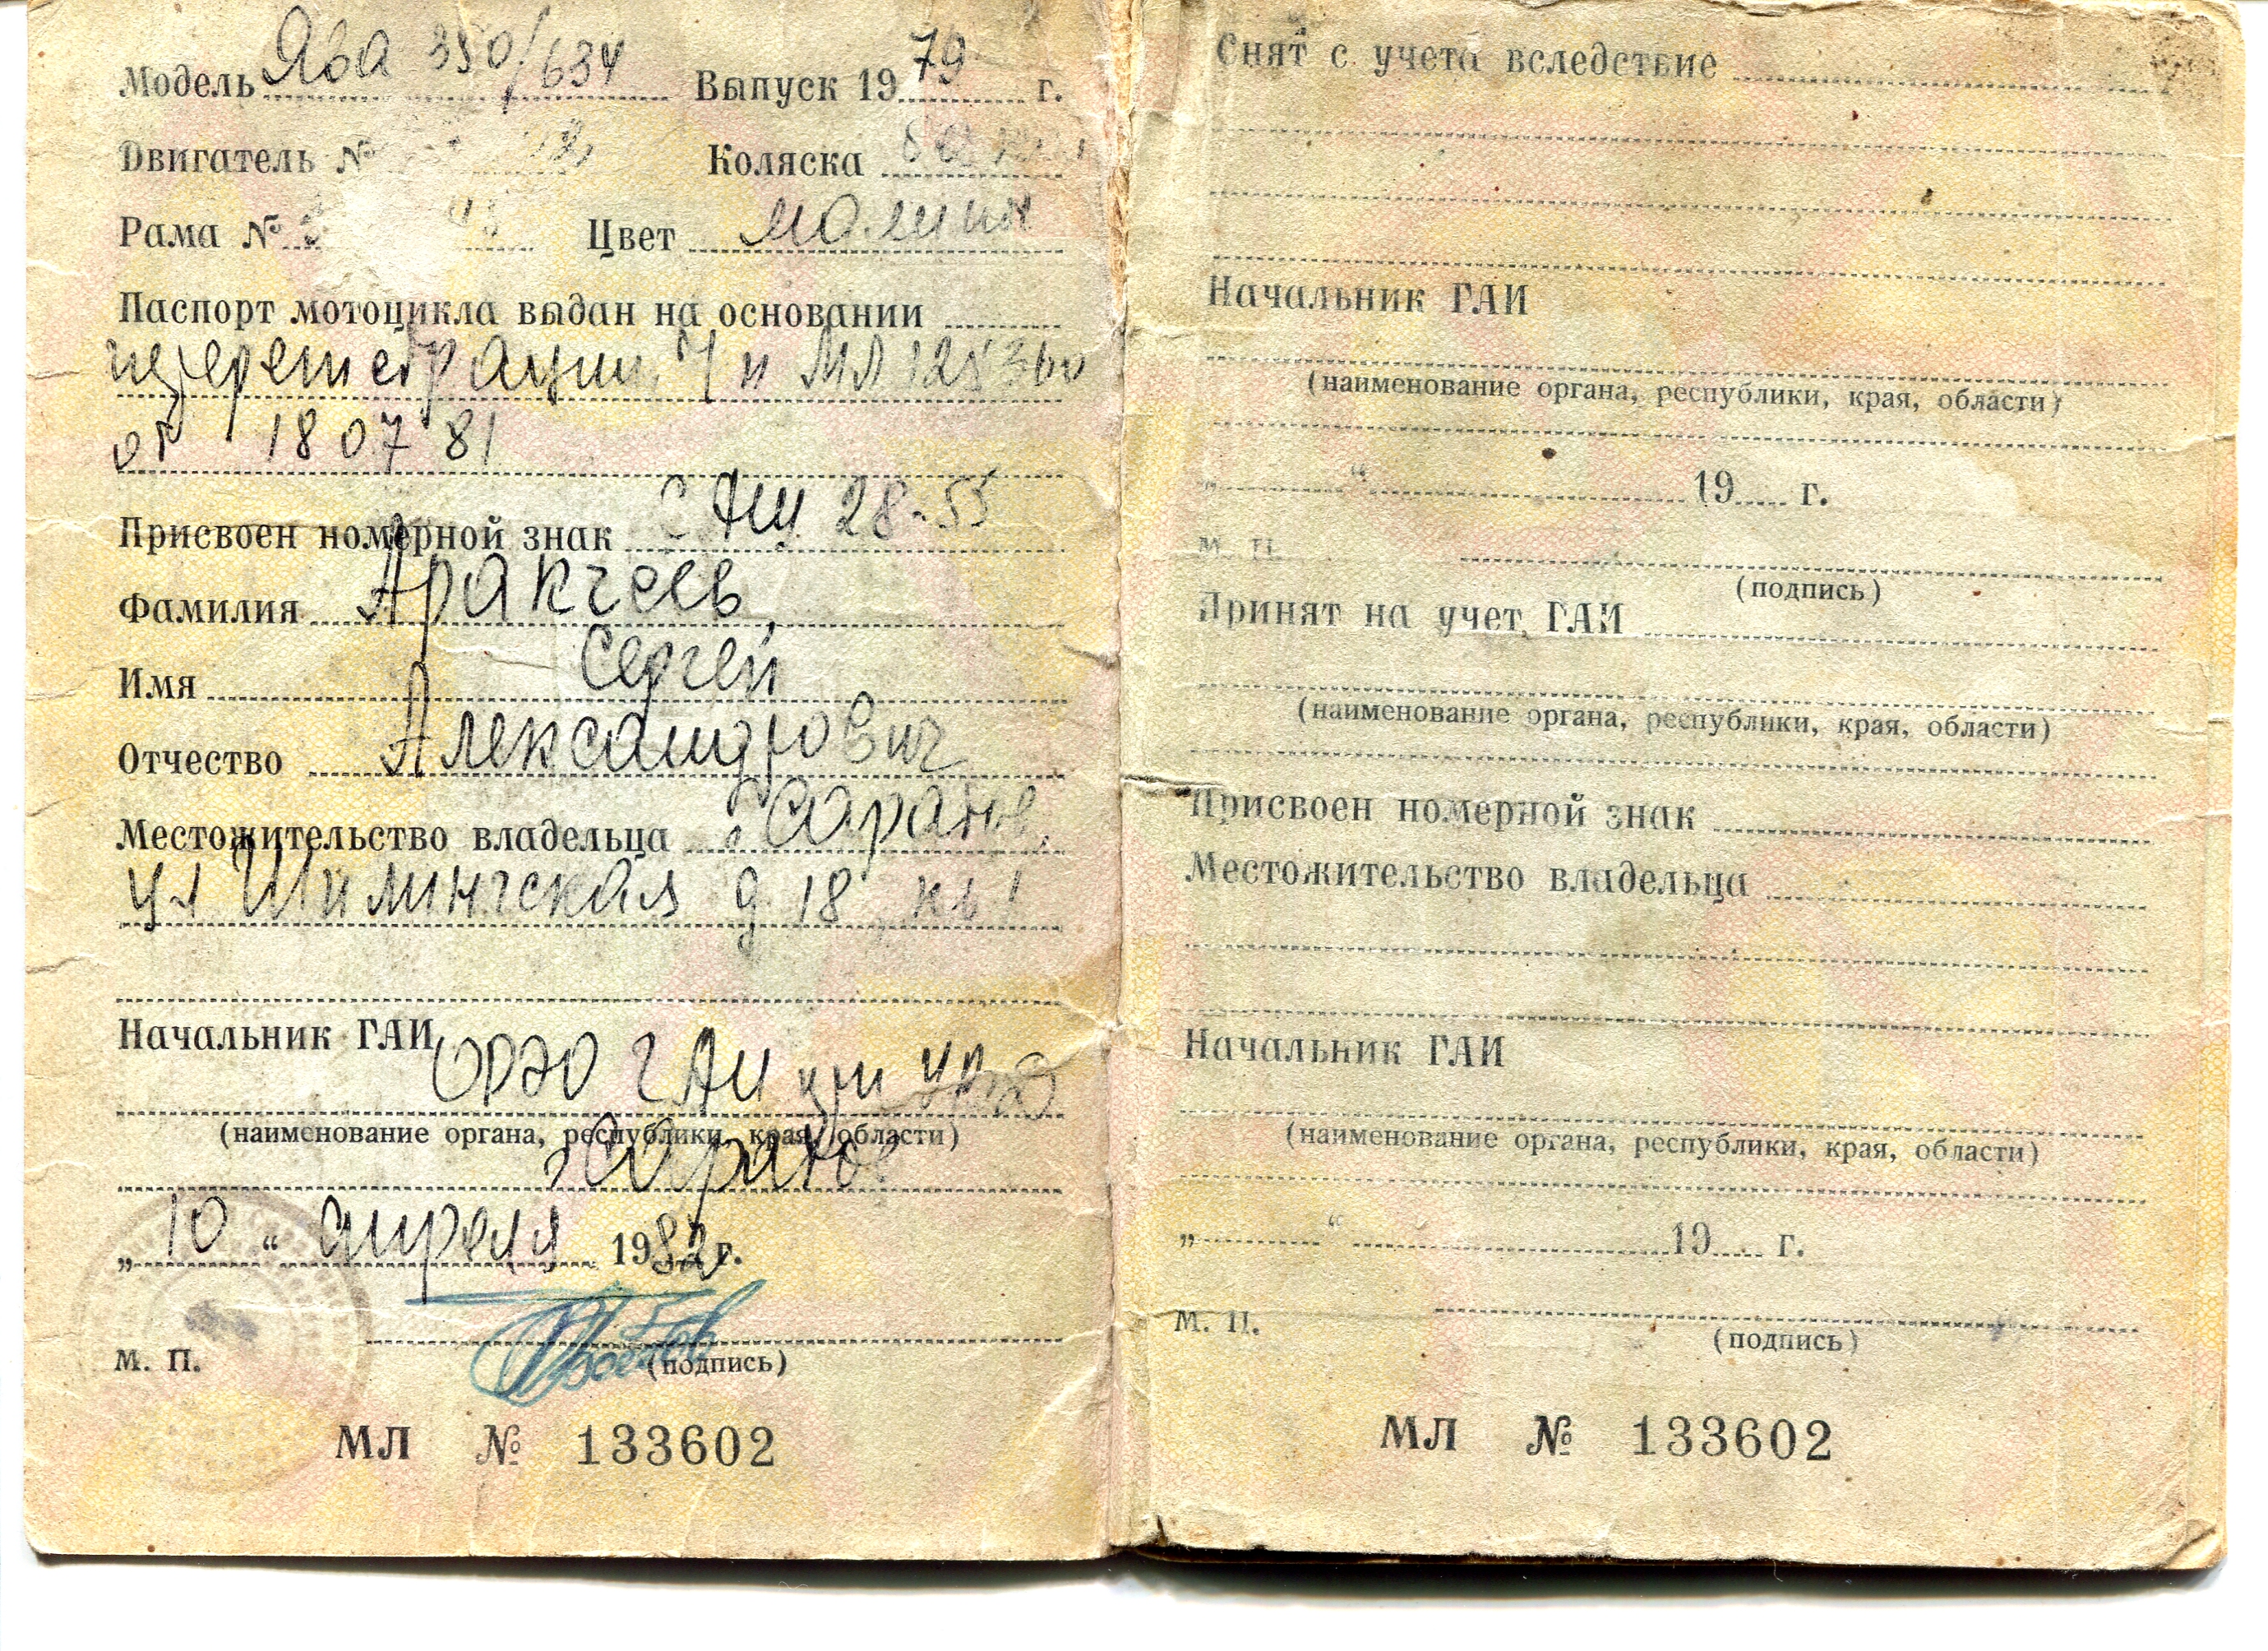 Модель Ява 350/634 Выпуск 1979 г.
Двигатель № Коляска
Рама № Цвет
Паспорт мотоцикла выдан на основании
т/п МЛ 125360
от 18 07 81
Присвоен номерной знак САЩ 28-55
Фамилия Аракчеев
Имя Сергей
Отчество Александрович
Местожительство владельца г Саранск
ул д 18 кв 1
Начальник ГАИ
ГАИ при
(наименование органа, республики, края, области)
г Саранск
„10“ апреля 1982 г.
М. П. (подпись)
МЛ № 133602
Снят с учета вследствие
Начальник ГАИ
(наименование органа, республики, края, области)
„ “ 19 г.
М. П.
(подпись)
Принят на учет ГАИ
(наименование органа, республики, края, области)
Присвоен номерной знак
Местожительство владельца
Начальник ГАИ
(наименование органа, республики, края, области)
„ “ 19 г.
М. П. (подпись)
МЛ № 133602